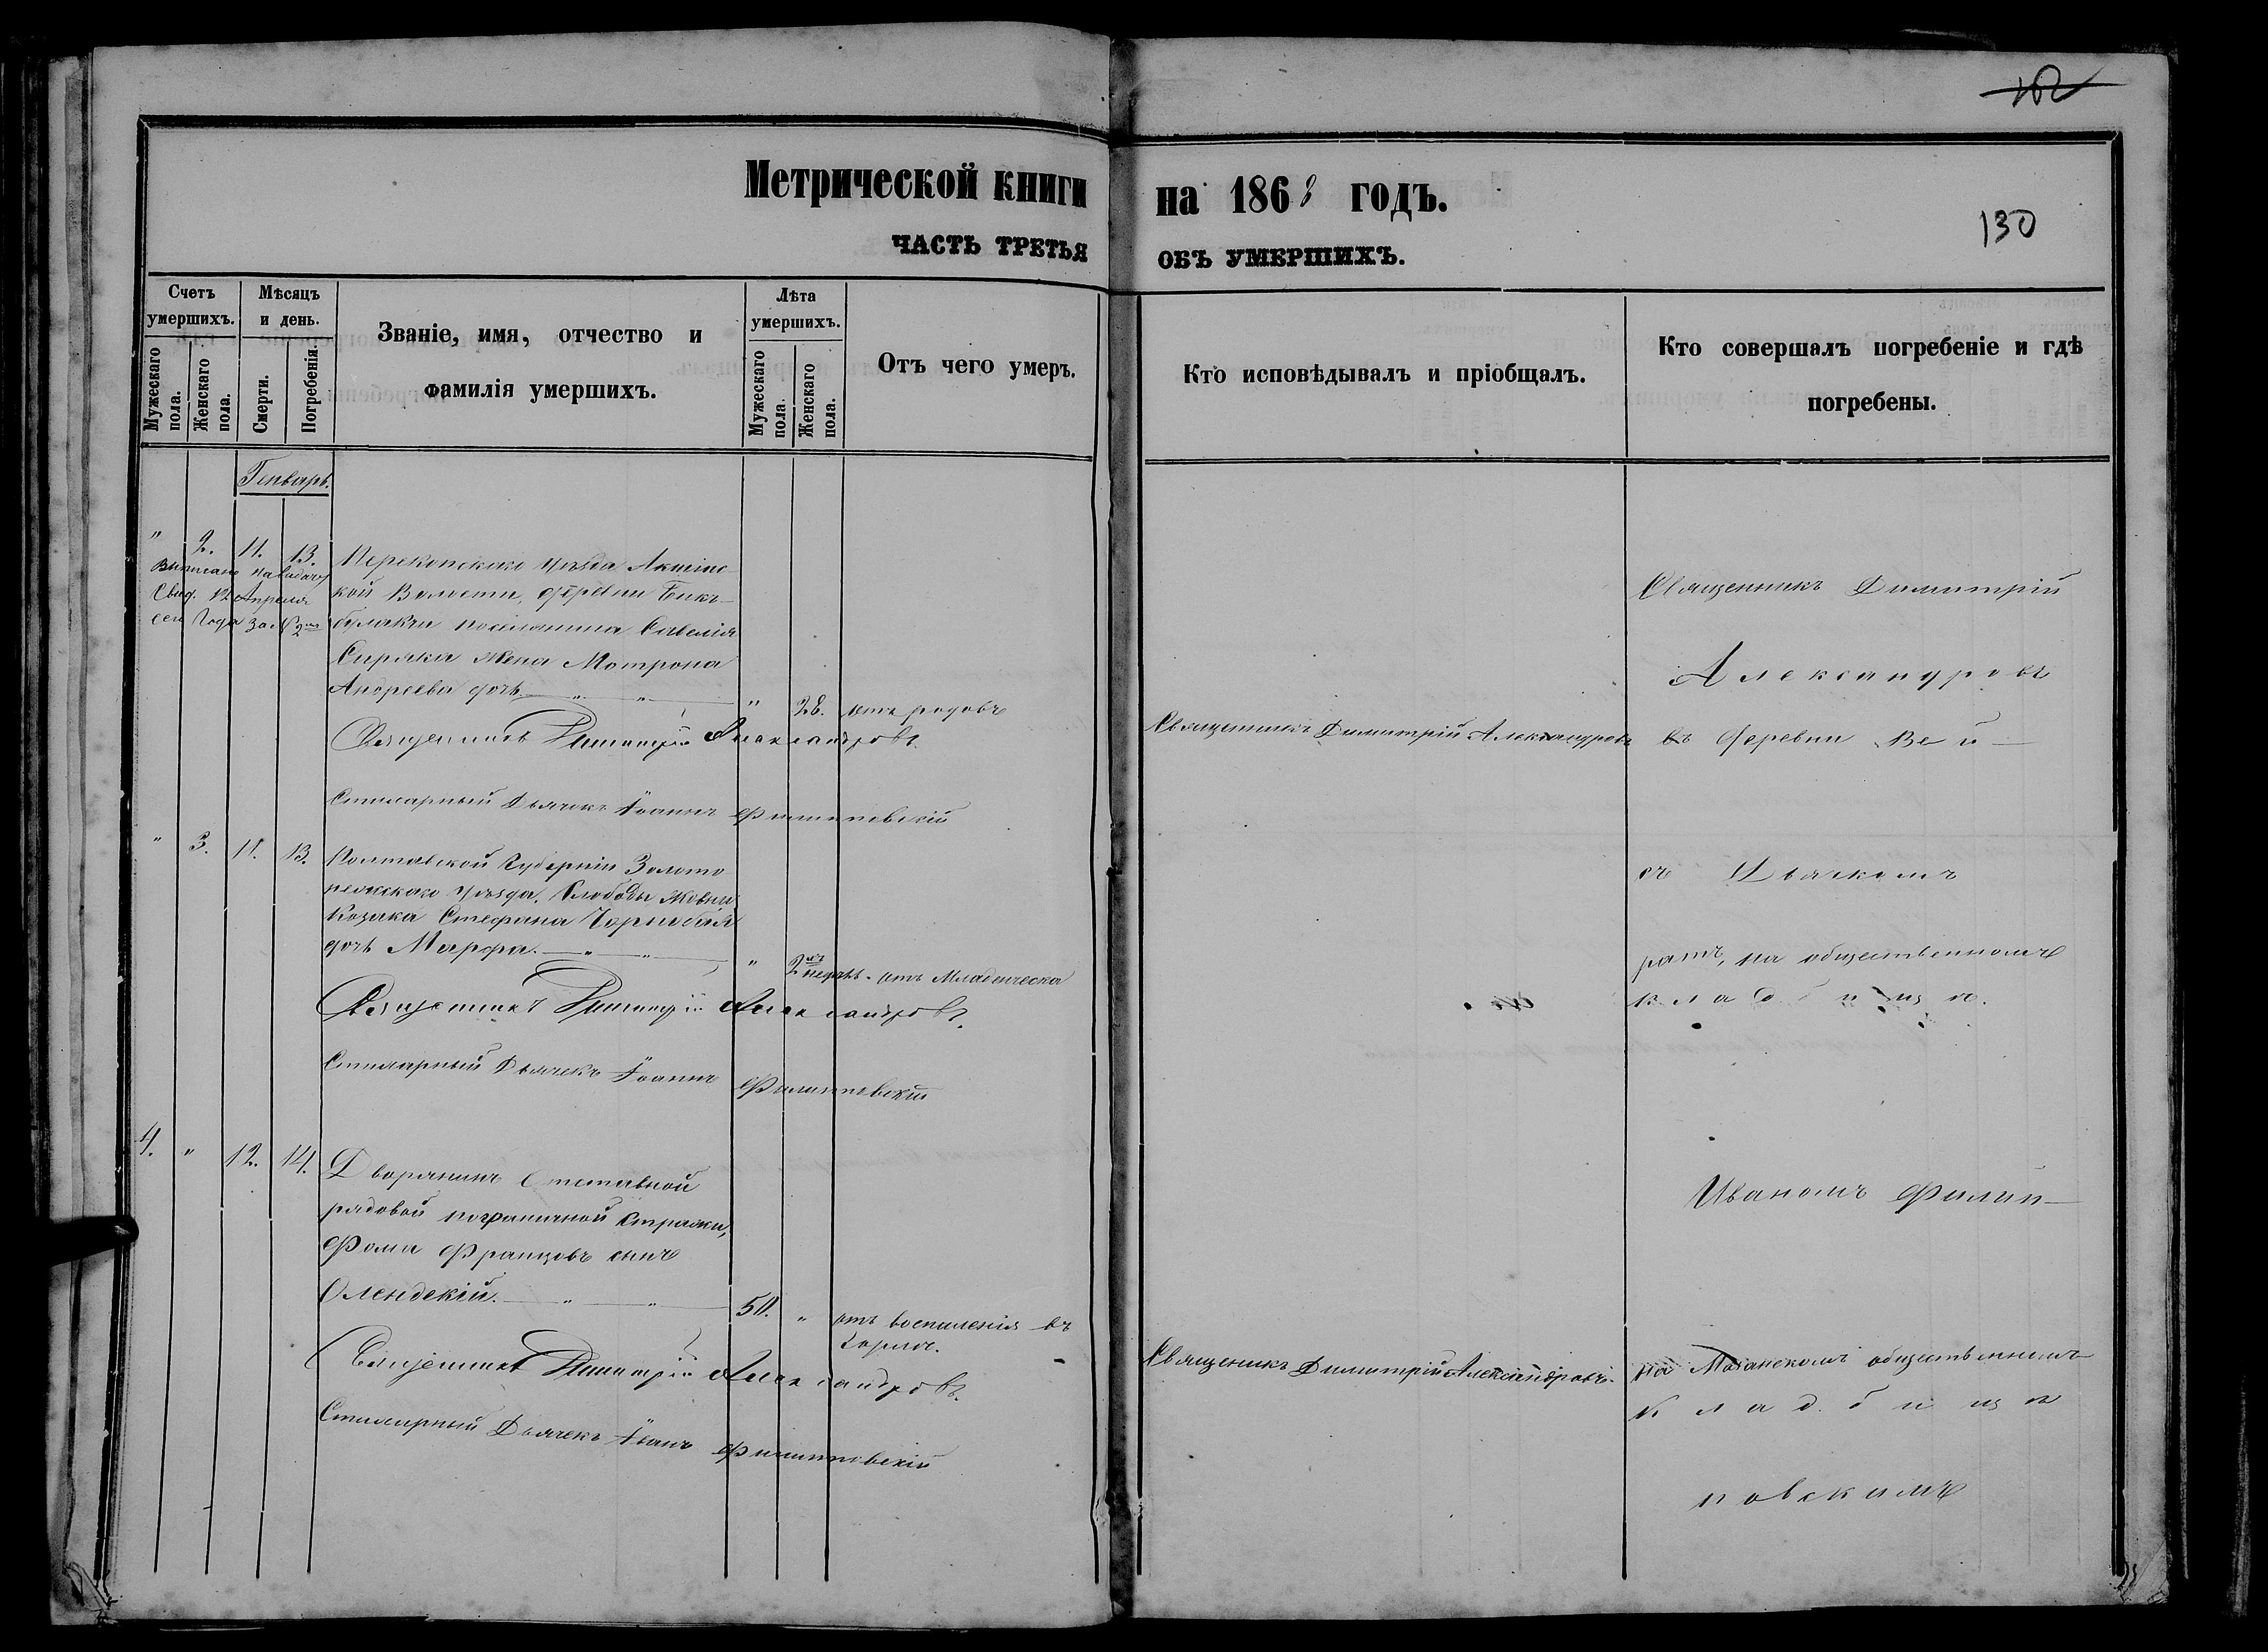 130
Метрической книги на 1868 годъ.
ЧАСТЬ ТРЕТЬЯ ОБЪ УМЕРШИХЪ.
Счетъ умершихъ.
Мужескаго пола.
Женскаго пола.
Мѣсяцъ и день.
Смерти.
Погребенія.
Званіе, имя, отчество и
фамилія умершихъ.
Лѣта умершихъ.
Мужескаго пола.
Женскаго пола.
Отъ чего умеръ.
Кто исповѣдывалъ и пріобщалъ.
Кто совершалъ погребеніе и гдѣ
погребены.
Генварь.
" 2. 11. 13. Перекопскаго уѣзда
Свид. 12 Апреля
сего года за №
кой Волости, деревни Бикъ-
булакчи поселянина Савелія
Сиряка жена Мотрона
Андреева дочь " 28. отъ родовъ
Священникъ Димитрій Александровъ
Священникъ Димитрій Александровъ.
Стихарный Дьячекъ Іоаннъ Филипповскій
" 3. 11. 13. Полтавской Губерніи Золото
ношскаго уѣзда, Слободы
Козака Стефана Чорнобая
дочь Марфа " 2хъ недѣль отъ Младенческа
Священникъ Димитрій Александровъ.
Стихарный Дьячекъ Іоаннъ Филипповскій
4. " 12. 14. Дворянинъ Отставной
рядовой пограничной стражи,
Фома Францовъ сынъ
Олендскій. 50. " отъ воспаленія въ
горлѣ.
Священникъ Димитрій Александровъ.
Священникъ Димитрій Александровъ.
Стихарный Дьячекъ Іванъ Филипповскій
Священникъ Димитрій
Александровъ
въ деревни Бей-
съ Дьячкомъ
ратъ, на общественномъ
кладбищѣ.
Иваномъ Филип-
на общественномъ
кладбищѣ
повскимъ